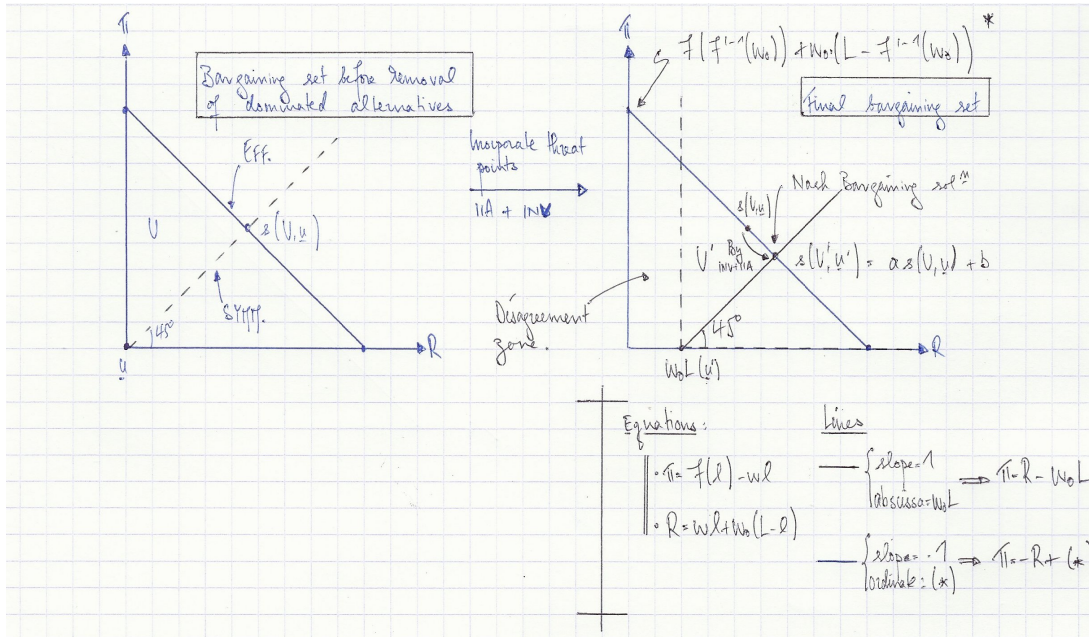 π
Bargaining set before removal
of dominated alternatives
EFF.
U
s(U,u)
SYMM.
45°
u
R
Incorporate threat
points
IIA + INV
π
f(f'⁻¹(w₀)) + w₀·(L - f'⁻¹(w₀)) *
Final bargaining set
Nash Bargaining sol^n
s(U,u)
U'
By
INV+IIA
s(U',u') = a s(U,u) + b
Disagreement
zone.
45°
R
w₀L (u')
Equations:
• π = f(l) - wl
• R = wl + w₀(L-l)
Lines
{ slope=1
abscissa=w₀L
⟹ π=R - w₀L
{ slope=-1
ordinate=(*)
⟹ π=-R+(*